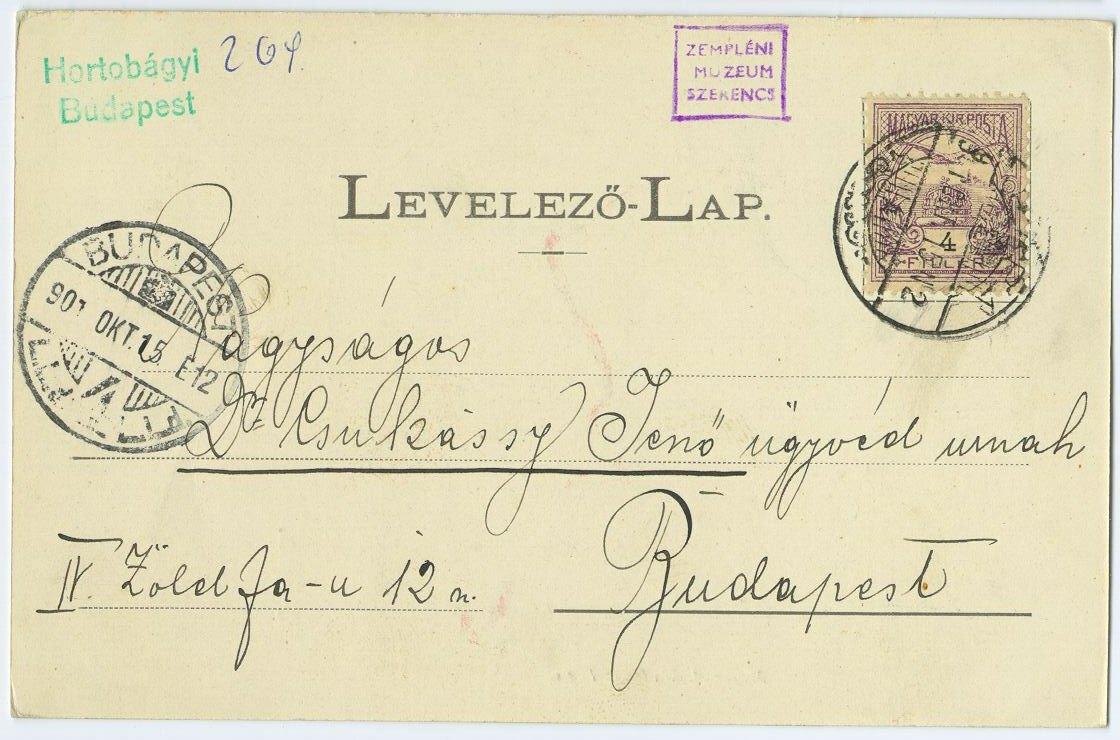 Hortobágyi 204.
Budapest
ZEMPLÉNI
MUZEUM
SZERENCS
MAGYAR KIR. POSTA
4
FILLÉR
LEVELEZŐ-LAP.
BUDAPEST
901 OKT. 15 E12
Nagyságos
Dr. Csukássy Jenő ügyvéd urnak
Budapest
IV. Zöldfa-u 12 n.